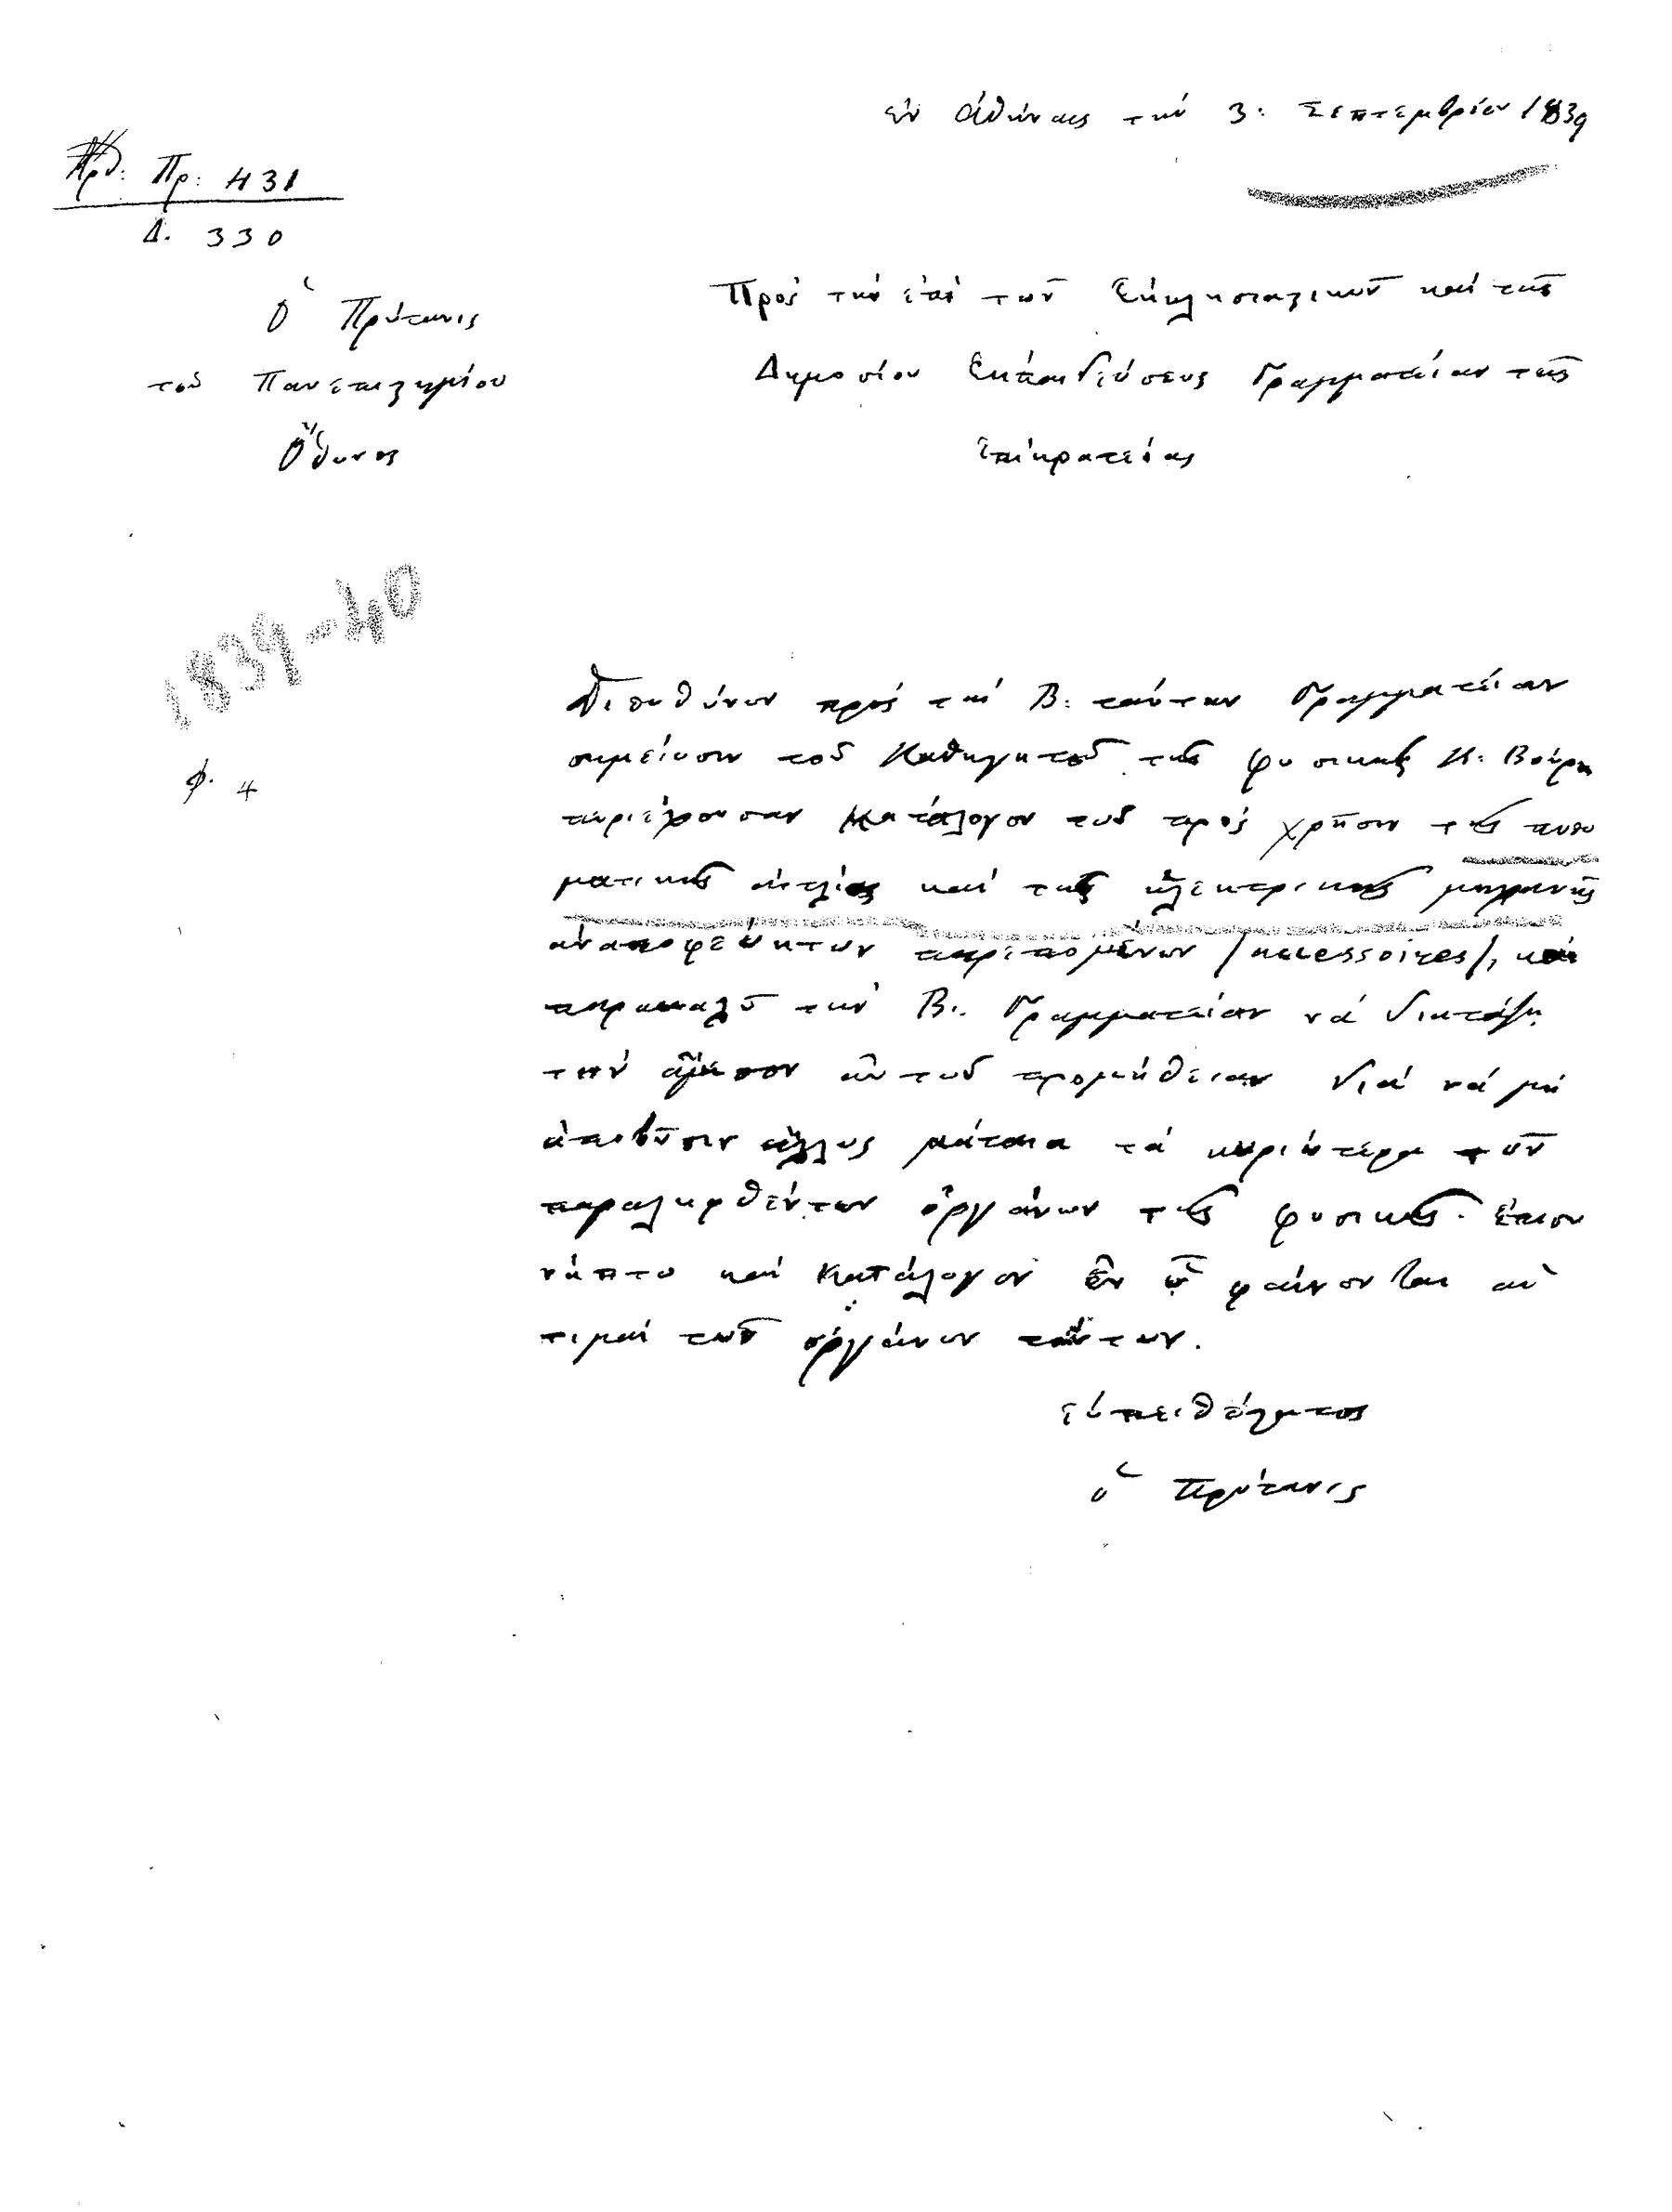 ἐν Ἀθήναις τὴν 3: Σεπτεμβρίου 1839
Ἀρθ: Πρ: 431
Δ. 330
Ὁ Πρύτανις
τοῦ Πανεπιστημίου
Ὄθωνος
Πρὸς τὴν ἐπὶ τῶν Ἐκκλησιαστικῶν καὶ τῆς
Δημοσίου Ἐκπαιδεύσεως Γραμματείαν τῆς
Ἐπικρατείας
1839-40
Φ. 4
Διευθύνων πρὸς τὴν Β: ταύτην Γραμματείαν
σημείωσιν τοῦ Καθηγητοῦ τῆς φυσικῆς Κ: Βούρη
περιέχουσαν κατάλογον τῶν πρὸς χρῆσιν τῆς πνευ
ματικῆς ἀντλίας καὶ τῆς ἠλεκτρικῆς μηχανῆς
ἀναποφεύκτων παρεπομένων /accessoires/, καὶ
παρακαλῶ τὴν Β. Γραμματείαν νὰ διατάξῃ
τὴν ἄμεσον αὐτῶν προμήθειαν διὰ νὰ μὴ
ἀποβῶσιν ἄλλως μάταια τὰ κυριώτερα τῶν
παραληφθέντων ὀργάνων τῆς φυσικῆς. ἐπισυ
νάπτω καὶ κατάλογον ἐν ᾧ φαίνονται αἱ
τιμαὶ τῶν ὀργάνων τούτων.
εὐπειθέστατος
ὁ Πρύτανις